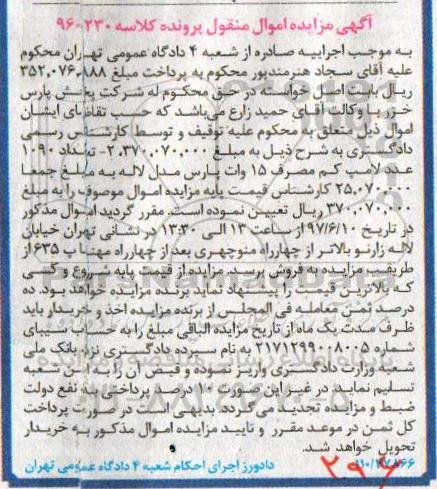 آگهی مزایده اموال منقول پرونده کلاسه ۲۳۰-۹۶
به موجب اجراییه صادره از شعبه ۴ دادگاه عمومی تهران محکوم
علیه آقای سجاد هنرمندپور محکوم به پرداخت مبلغ ۳۵۲,۰۷۶,۸۸۸
ریال بابت اصل خواسته در حق محکوم له شرکت پخش پارس
خزر با وکالت آقای حمید زارع می‌باشد که حسب تقاضای ایشان
اموال ذیل متعلق به محکوم علیه توقیف و توسط کارشناس رسمی
دادگستری به شرح ذیل به مبلغ ۲,۳۷۰,۰۷۰,۰۰۰- تعداد ۱۰۹۰
عدد لامپ کم مصرف ۱۵ وات پارس مدل لاله به مبلغ جمعا
۲۵,۰۷۰,۰۰۰ کارشناس قیمت پایه مزایده اموال موصوف را به مبلغ
۳۷۰,۰۷۰,۰۰۰ ریال تعیین نموده است. مقرر گردید اموال مذکور
در تاریخ ۹۷/۶/۱۰ از ساعت ۱۳ الی ۱۳:۳۰ در نشانی تهران خیابان
لاله زارنو بالاتر از چهارراه منوچهری بعد از چهارراه مهنا پ ۶۳۵ از
طریق مزایده به فروش برسد. مزایده از قیمت پایه شروع و کسی
که بالاترین قیمت را پیشنهاد نماید برنده مزایده خواهد بود. ده
درصد ثمن معامله فی المجلس از برنده مزایده اخذ و خریدار باید
ظرف مدت یک ماه از تاریخ مزایده الباقی مبلغ را به حساب سیبای
شماره ۲۱۷۱۲۹۹۰۰۸۰۰۵ به نام سپرده دادگستری نزد بانک ملی
شعبه وزارت دادگستری واریز نموده و قبض آن را به این شعبه
تسلیم نماید. در غیر این صورت ۱۰ درصد پرداختی به نفع دولت
ضبط و مزایده تجدید می‌گردد. بدیهی است در صورت پرداخت
کل ثمن در موعد مقرر و تایید مزایده اموال مذکور به خریدار
تحویل خواهد شد.
دادورز اجرای احکام شعبه ۴ دادگاه عمومی تهران